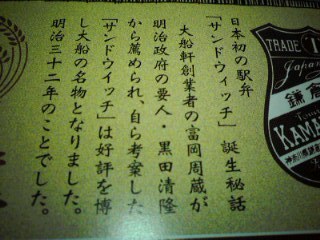 日本初の駅弁
「サンドウイッチ」誕生秘話
大船軒創業者の富岡周蔵が
明治政府の要人・黒田清隆
から薦められ、自ら考案した
「サンドウイッチ」は好評を博
し大船の名物となりました。
明治三十二年のことでした。
TRADE
Japan
鎌倉
KAMA